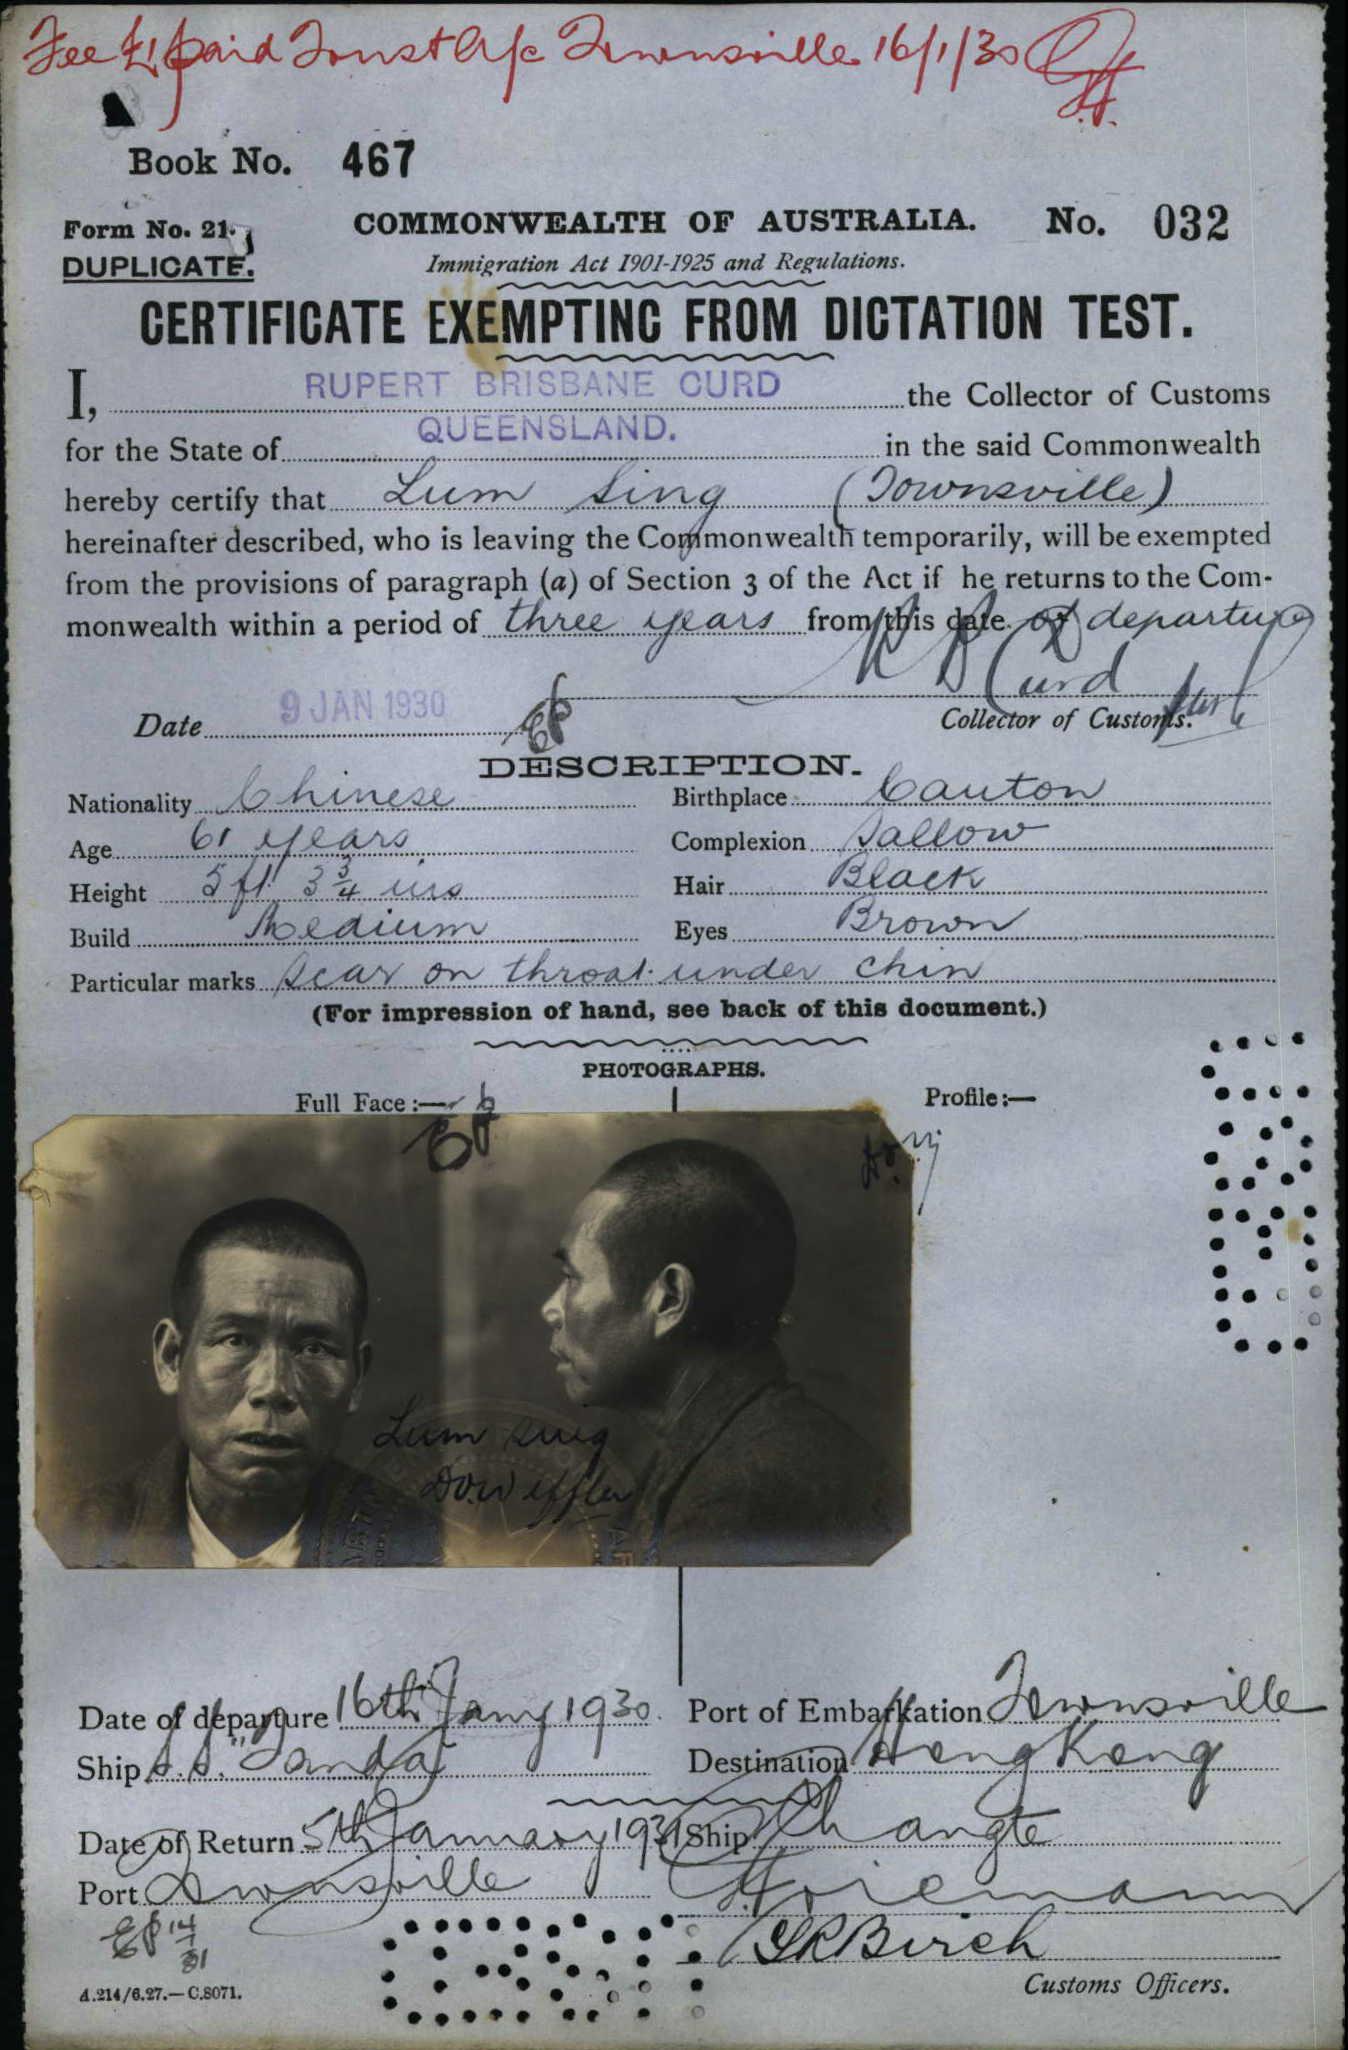 Fee £1 paid Trust A/c Townsville 16/1/30
Book No. 467
Form No. 21.
DUPLICATE.
COMMONWEALTH OF AUSTRALIA. No. 032
Immigration Act 1901-1925 and Regulations.
CERTIFICATE EXEMPTING FROM DICTATION TEST.
I, RUPERT BRISBANE CURD the Collector of Customs
for the State of QUEENSLAND. in the said Commonwealth
hereby certify that Lum Sing (Townsville)
hereinafter described, who is leaving the Commonwealth temporarily, will be exempted
from the provisions of paragraph (a) of Section 3 of the Act if he returns to the Com-
monwealth within a period of three years from this date of departure
R B Curd
Date 9 JAN 1930
Collector of Customs.
DESCRIPTION.
Nationality Chinese Birthplace Canton
Age 61 years Complexion Sallow
Height 5 ft 3 3/4 ins Hair Black
Build Medium Eyes Brown
Particular marks Scar on throat under chin
(For impression of hand, see back of this document.)
PHOTOGRAPHS.
Full Face:— Profile:—
Lum Sing
Date of departure 16th Jany 1930. Port of Embarkation Townsville
Ship S.S. "Tanda" Destination Hong Kong
Date of Return 5th January 1931 Ship Changte
Port Townsville
GRBirch
14/1/31
Customs Officers.
A.214/6.27.—C.8071.